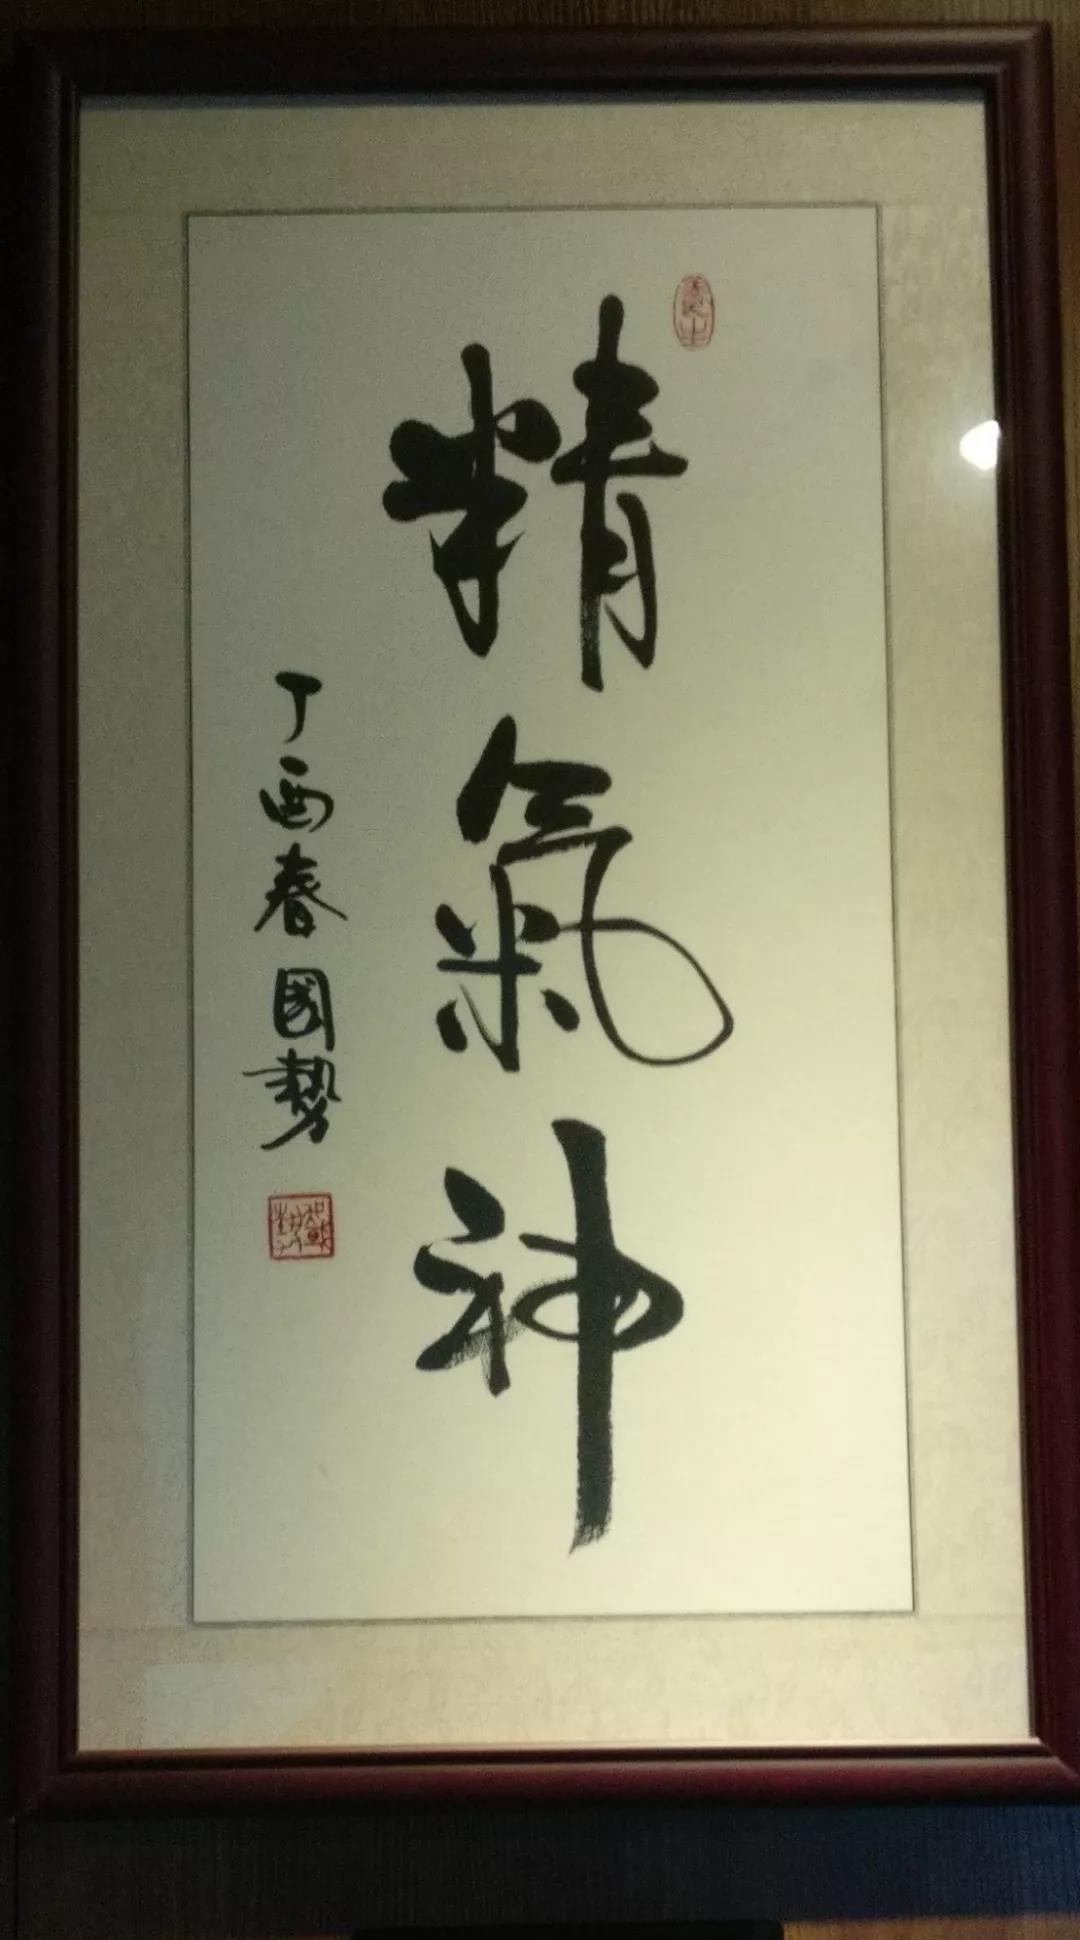 精氣神
丁酉春 國勢